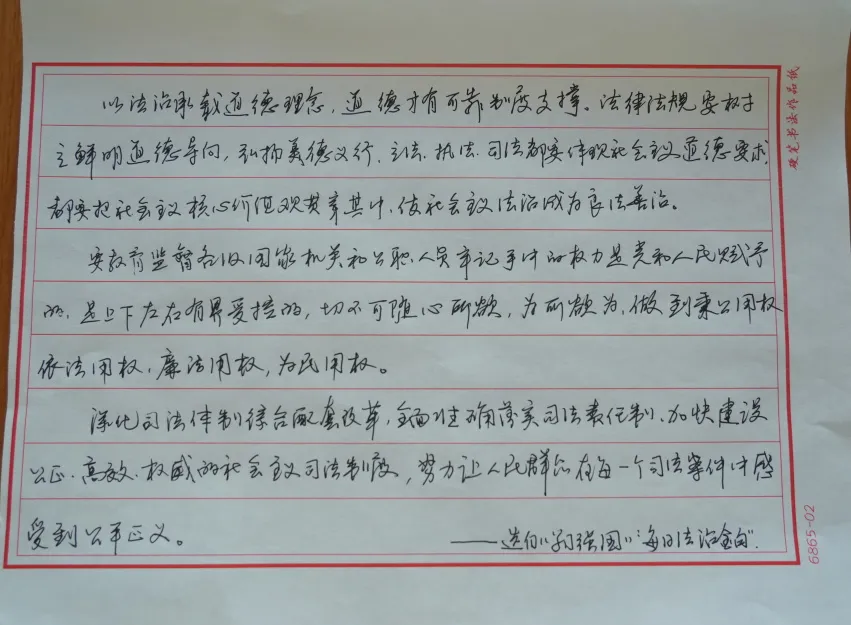 以法治承载道德理念，道德才有可靠制度支撑。法律法规要树
立鲜明道德导向，弘扬美德义行，立法、执法、司法都要体现社会主义道德要求
都要把社会主义核心价值观贯穿其中，使社会主义法治成为良法善治。
要教育监督各级国家机关和公职人员牢记手中的权力是党和人民赋予
的，是上下左右有界受控的，切不可随心所欲，为所欲为，做到秉公用权
依法用权，廉洁用权，为民用权。
深化司法体制综合配套改革，全面准确落实司法责任制，加快建设
公正、高效、权威的社会主义司法制度，努力让人民群众在每一个司法案件中感
受到公平正义。
——选自"学习强国""每日法治金句".
硬笔书法作品纸
6865-02